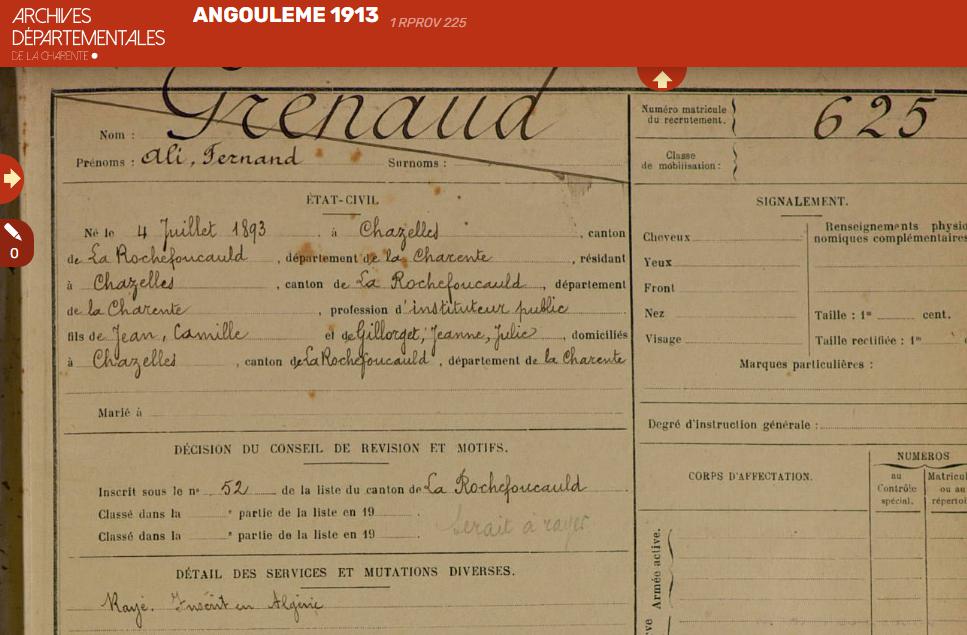 ARCHIVES
DÉPARTEMENTALES
DE LA CHARENTE
ANGOULEME 1913 1 RPROV 225
0
Grenaud
Nom :
Prénoms : Ali, Fernand Surnoms :
Numéro matricule
du recrutement.
625
Classe
de mobilisation :
ÉTAT-CIVIL
Né le 4 Juillet 1893 à Chazelles, canton
de La Rochefoucauld, département de la Charente, résidant
à Chazelles, canton de La Rochefoucauld, département
de la Charente, profession d'instituteur public
fils de Jean, Camille et de Gillorget, Jeanne, Julie, domiciliés
à Chazelles, canton de La Rochefoucauld, département de la Charente
Marié à
DÉCISION DU CONSEIL DE REVISION ET MOTIFS.
Inscrit sous le n° 52 de la liste du canton de La Rochefoucauld
Classé dans la e partie de la liste en 19
Classé dans la e partie de la liste en 19
Serait à rayer
DÉTAIL DES SERVICES ET MUTATIONS DIVERSES.
Rayé. Inscrit en Algérie
SIGNALEMENT.
Cheveux
Yeux
Front
Nez
Visage
Renseignements physio
nomiques complémentaires
Taille : 1m cent.
Taille rectifiée : 1m
Marques particulières :
Degré d'instruction générale :
CORPS D'AFFECTATION.
NUMEROS
au
Contrôle
spécial.
Matricul
ou au
répertoi
Armée active.
ve